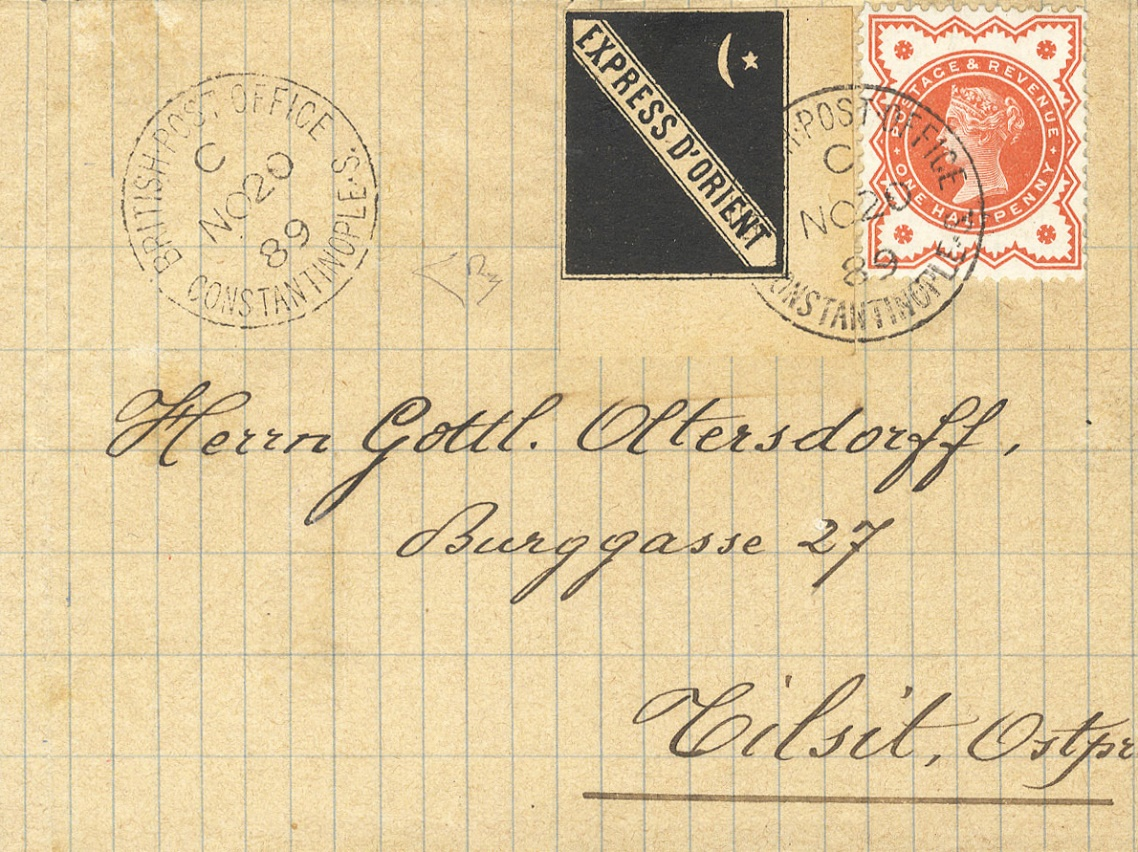 BRITISH POST OFFICE
C
NO 20
89
CONSTANTINOPLE.S.
EXPRESS D'ORIENT
POST OFFICE
C
NO 20
89
CONSTANTINOPLE.S.
POSTAGE & REVENUE
ONE HALFPENNY
Herrn Gottl. Oltersdorff,
Burggasse 27
Tilsit, Ostpr